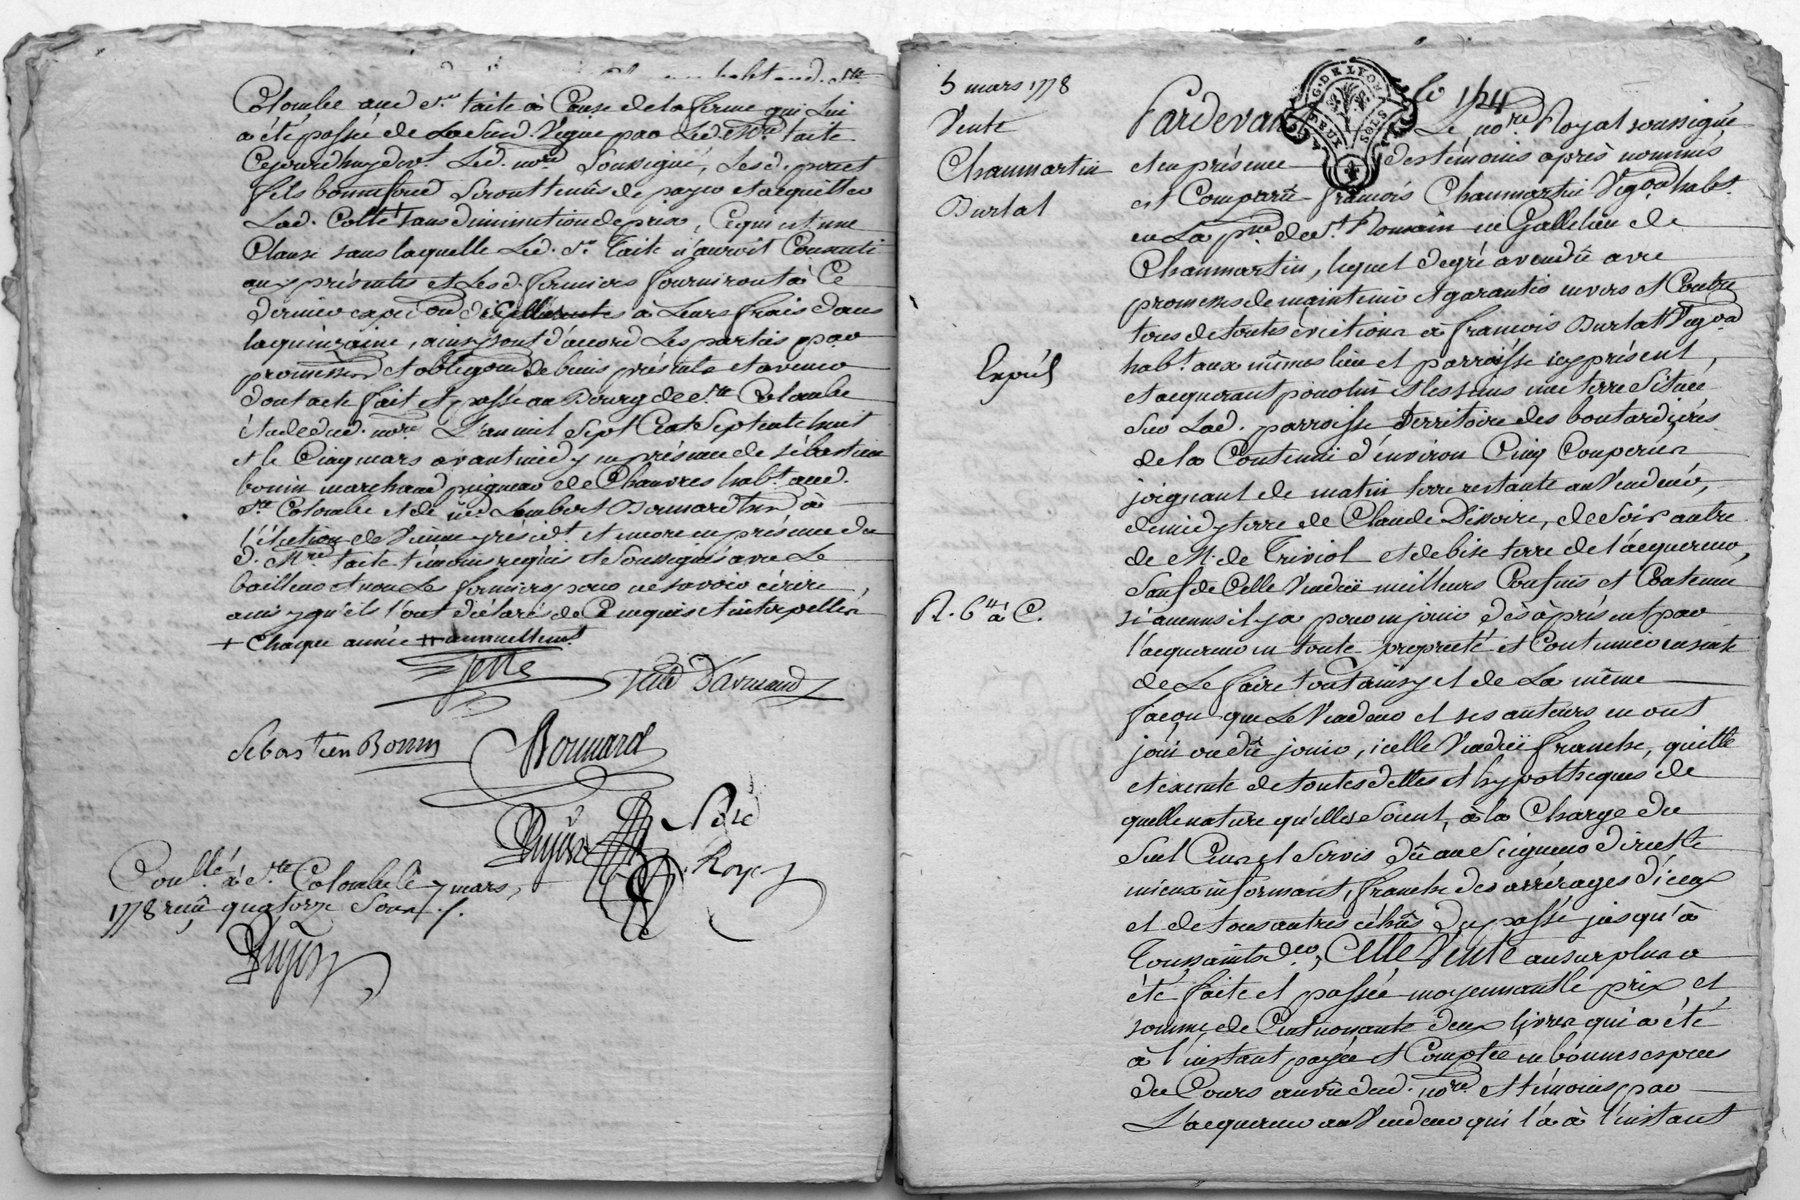 Colombe aud. Sr. taite à Cause de la ferme qui lui
a été passée de par led. Mre taite
Cejourdhuy devt. Led. nore Soussigné, Lesd. pere et
fils bonnefond Seront tenus de payer et acquitter
Lad. Cotte sans diminution de prix, Ce qui est une
Clause sans laquelle Led. Sr. taite n'auroit Consenti
aux présentes et Lesd. fermiers fourniront à Ce
dernier expedon. d'icelles à Leurs frais dans
la quinzaine, ainsy sont d'accord Les parties par
promesses et obligaon de biens présents et avenir
dont acte fait et passé au Bourg de Ste Colombe
étude dud. nore L'an mil Sept Cent Septante huit
et le Cinq mars avant midy en présence de sébastien
bonin marchand peigneur de Chanvres habt. aud.
Ste Colombe et de Me Lambert Bonnard
l'élection de Vienne y résidt. et encore en présence du
d. Mre taite témoins requis et Soussignés avec Le
bailleur et non Les fermiers pour ne savoir écrire
ainsy qu'ils l'ont déclaré de Ce enquis et interpellés
+ Chaque année annuellement
Sébastien Bonin Bonnard
Dujon
Roy
Conllé. à Ste Colombe le 7 mars
1778 reçu quatorze Sous
Dujon
5 mars 1778
Vente
Chaumartin
Burlat
Expéd.
R. 6# à C.
G. DE LYON
DEUX SOLS
Pardevant Le nore Royal soussigné
et en présence des témoins après nommés
est Comparu françois Chaumartin Vigon habt.
en La psse de St. Romain en Gallet lieu de
Chaumartin, lequel de gré a vendu avec
promesses de maintenir et garantir envers et Contre
tous de toutes evictions à françois Burlat Vigon
habt. aux mêmes lieu et parroisse icy présent,
et acquerant pour lui et les siens une terre Située
Sur Lad. parroisse territoire des boutardières
de la Contenue d'environ Cinq Couperées
joignant de matin terre restante au Vendeur,
de midy terre de Claude Dissoire, de Soir autre
de M. de Triviol et de bise terre de l'acquereur,
Sauf de Celle Vendüe meilleurs Confins et Contenue
si aucuns il y a pour en jouir dès à présent par
l'acquereur en toute propriété et Contenue
de Le faire tout ainsy et de La même
façon que Le Vendeur et ses auteurs en ont
joui ou dû jouir, icelle Vendüe franche, quitte
et exempte de toutes dettes et hypotheques de
quelle nature qu'elles Soient, à la Charge du
Seul Cens et Servis dû au Seigneur directe
mieux informant, franche des arrérages d'iceux
et de tous autres échus du passé jusqu'à
Toussaints der., Cette Vente au surplus a
été faite et passée moyennant le prix et
somme de Cent nonante deux livres qui a été
à l'instant payée et Comptée en bonnes especes
du Cours au vû dud. nore et témoins par
L'acquereur au Vendeur qui l'a à l'instant